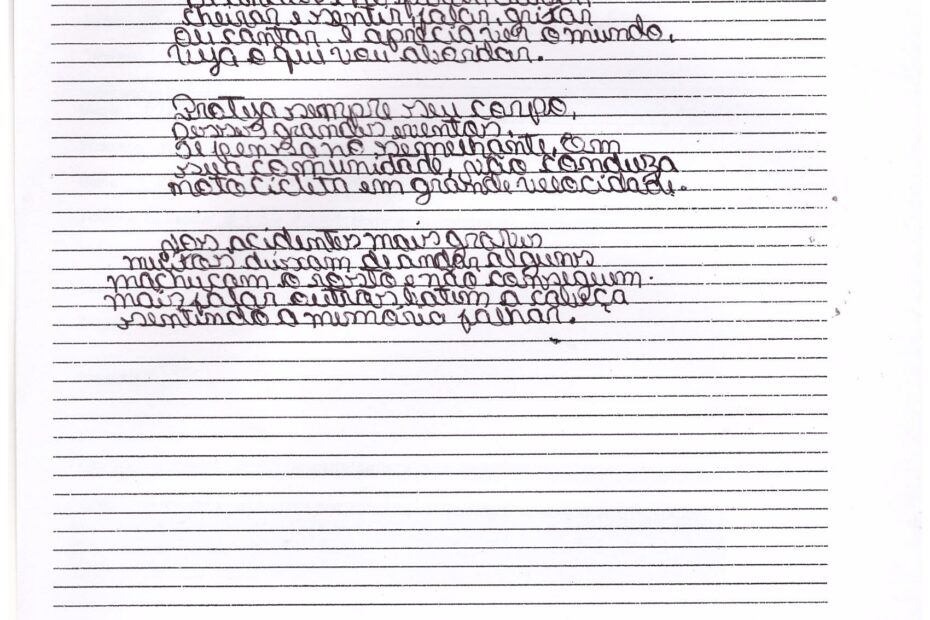 cheirar e sentir, falar, gritar
ou cantar, e apreciar ver o mundo,
veja o qui vou abordar.
Proteja sempre seu corpo,
desses grandes eventos,
se pensa no semelhante, Em
sua comunidade, não conduza
motocicleta em grande velocidade.
Nos acidentes mais graves
muitos dexam de andar alguns
machucam o rosto e não conseguem.
mais falar outras batem a cabeça
sentindo a memória falhar.